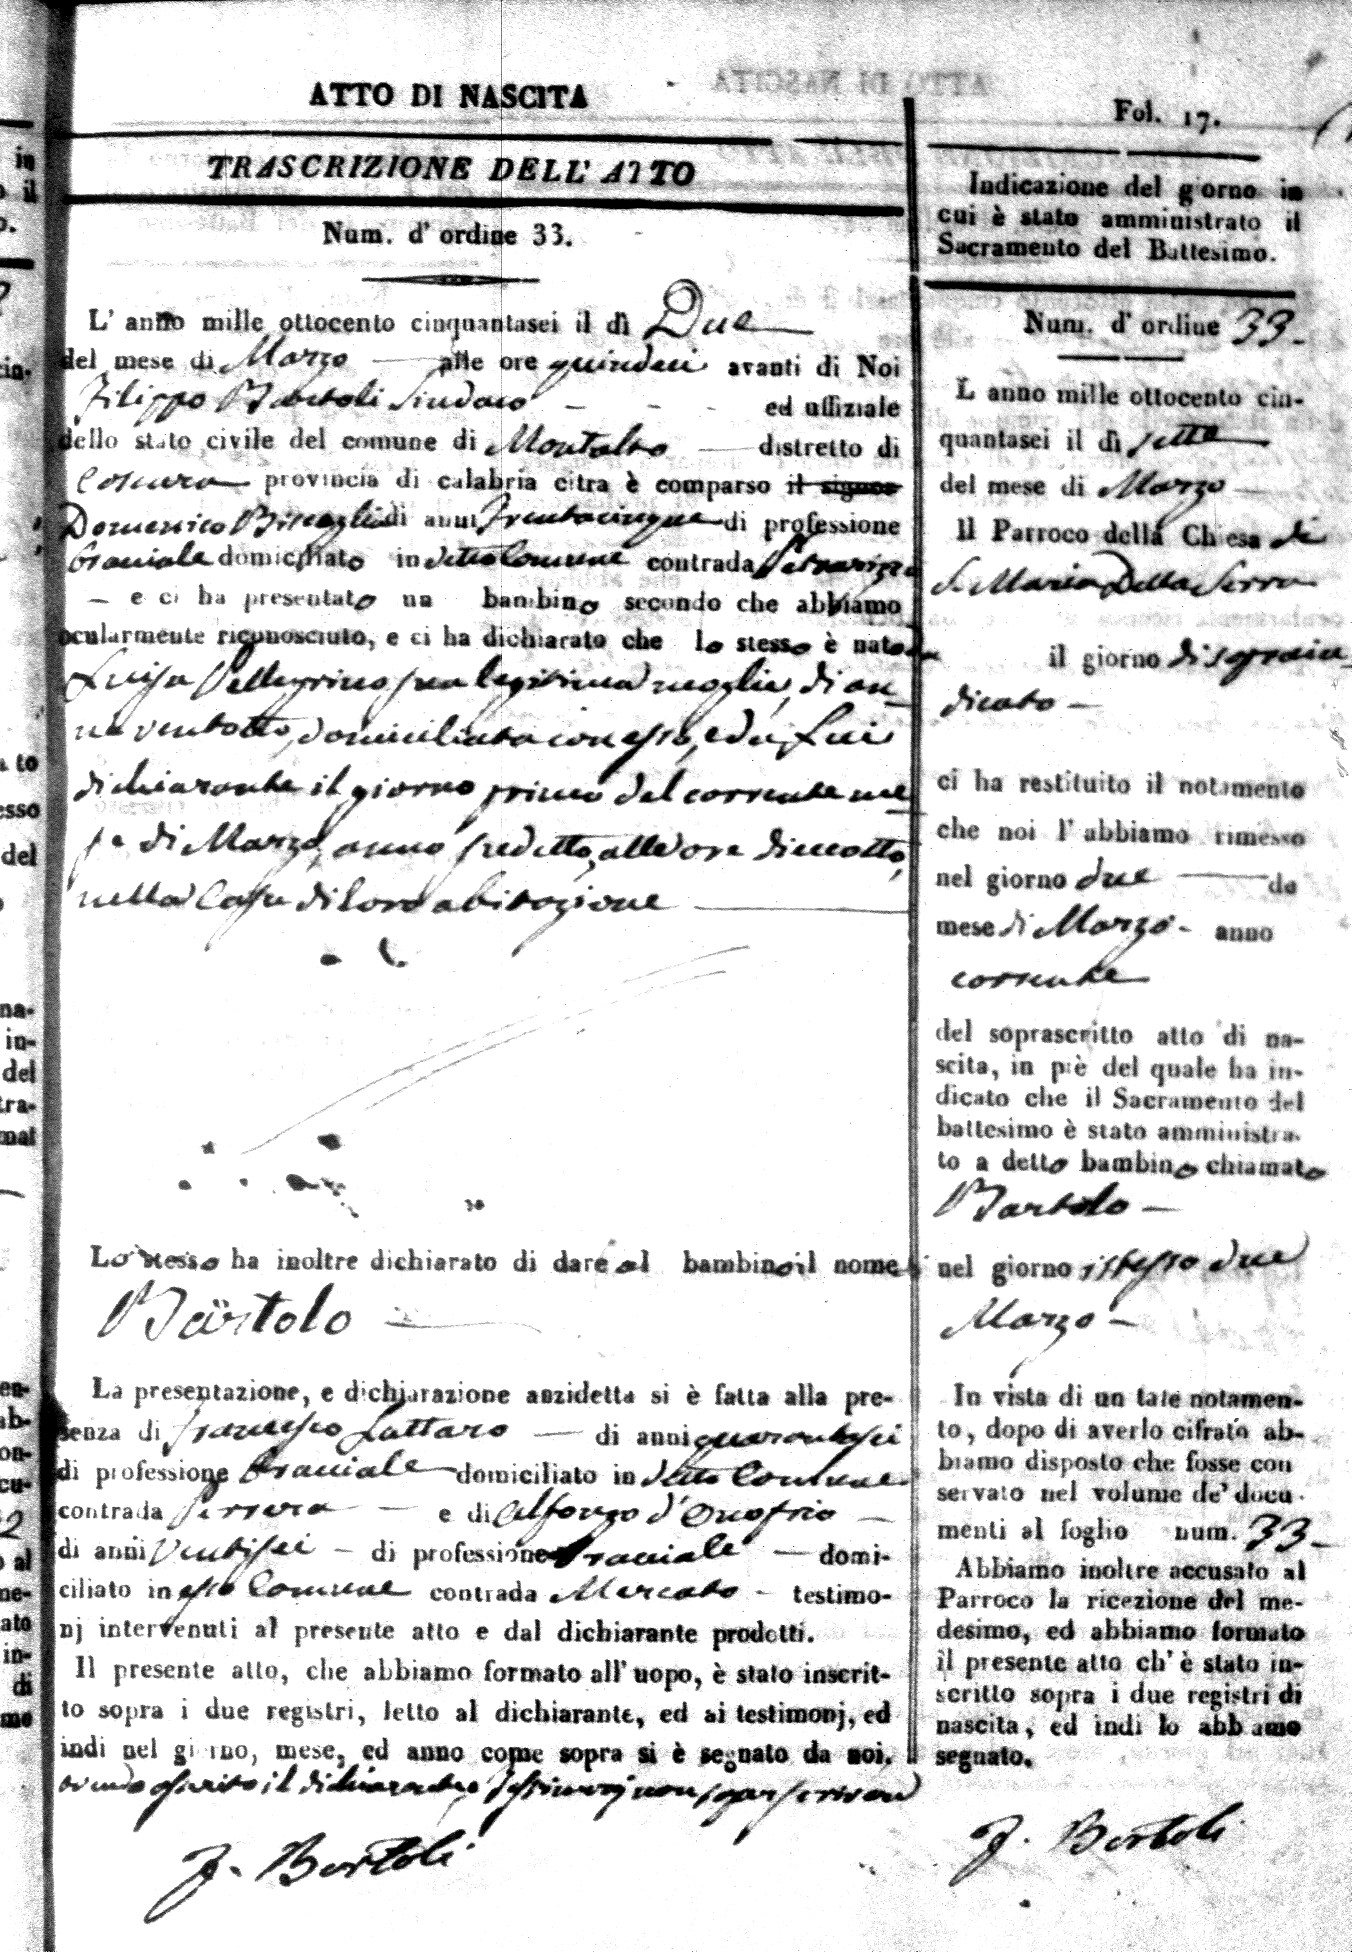 ATTO DI NASCITA
TRASCRIZIONE DELL' ATTO
Num. d' ordine 33.
L' anno mille ottocento cinquantasei il dì Due
del mese di Marzo alle ore quindeci avanti di Noi
Filippo Bartoli Sindaco ed uffiziale
dello stato civile del comune di Montalto distretto di
Cosenza provincia di calabria citra è comparso il signor
Domenico di anni trentacinque di professione
braciale domiciliato in detto Comune contrada
e ci ha presentato un bambino secondo che abbiamo
ocularmente riconosciuto, e ci ha dichiarato che lo stesso è nato da
Luisa Pellegrino sua legitima moglie, di an
ni ventotto, domiciliata con esso, e da lui
dichiarante il giorno primo del corrente me
se di Marzo, anno sudetto, alle ore dieciotto,
nella Casa di loro abitazione
Lo stesso ha inoltre dichiarato di dare al bambino il nome
Bartolo
La presentazione, e dichiarazione anzidetta si è fatta alla pre-
senza di Francesco Lattaro di anni quarantasei
di professione braciale domiciliato in detto Comune
contrada e di Alfonzo d'Onofrio
di anni ventisei di professione braciale domi-
ciliato in esso Comune contrada Mercato testimo-
nj intervenuti al presente atto e dal dichiarante prodotti.
Il presente atto, che abbiamo formato all' uopo, è stato inscrit-
to sopra i due registri, letto al dichiarante, ed ai testimonj, ed
indi nel giorno, mese, ed anno come sopra si è segnato da noi.
avendo asserito il dichiarante, e testimonj non saper scrivere
F. Bartoli
Fol. 17.
Indicazione del giorno in
cui è stato amministrato il
Sacramento del Battesimo.
Num. d' ordine 33.
L anno mille ottocento cin-
quantasei il dì sette
del mese di Marzo
Il Parroco della Chiesa di
S. Maria Della Serra
il giorno di sopra in
dicato
ci ha restituito il notamento
che noi l' abbiamo rimesso
nel giorno due de
mese di Marzo anno
corrente
del soprascritto atto di na-
scita, in piè del quale ha in-
dicato che il Sacramento del
battesimo è stato amministra-
to a detto bambino chiamato
Bartolo
nel giorno istesso due
Marzo
In vista di un tale notamen-
to, dopo di averlo cifrato ab-
biamo disposto che fosse con
servato nel volume de' docu-
menti al foglio num. 33
Abbiamo inoltre accusato al
Parroco la ricezione del me-
desimo, ed abbiamo formato
il presente atto ch' è stato in-
scritto sopra i due registri di
nascita, ed indi lo abbiamo
segnato.
F. Bartoli